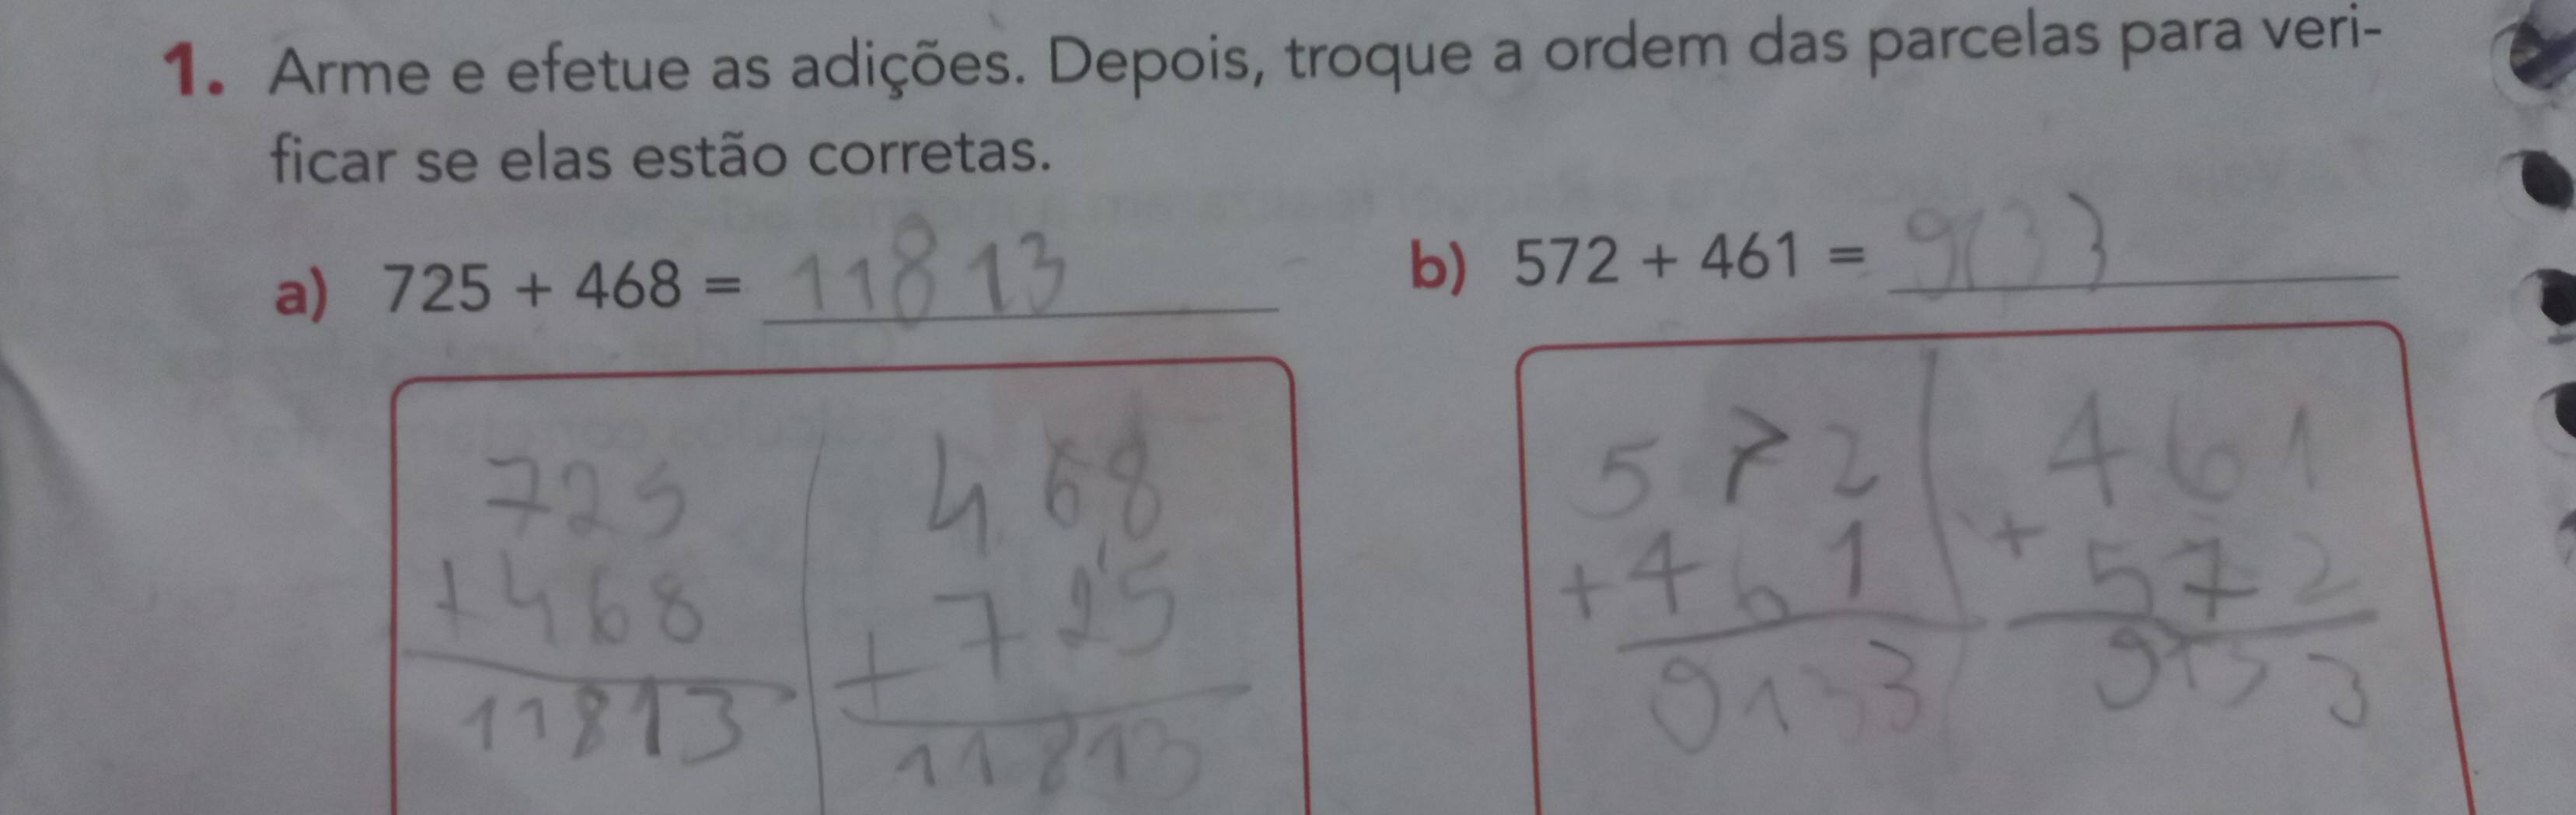 1. Arme e efetue as adições. Depois, troque a ordem das parcelas para veri-
ficar se elas estão corretas.
a) 725 + 468 = 11813
b) 572 + 461 = 9133
725
+ 468
11813
468
+ 725
11813
572
+ 461
9133
461
+ 572
9133